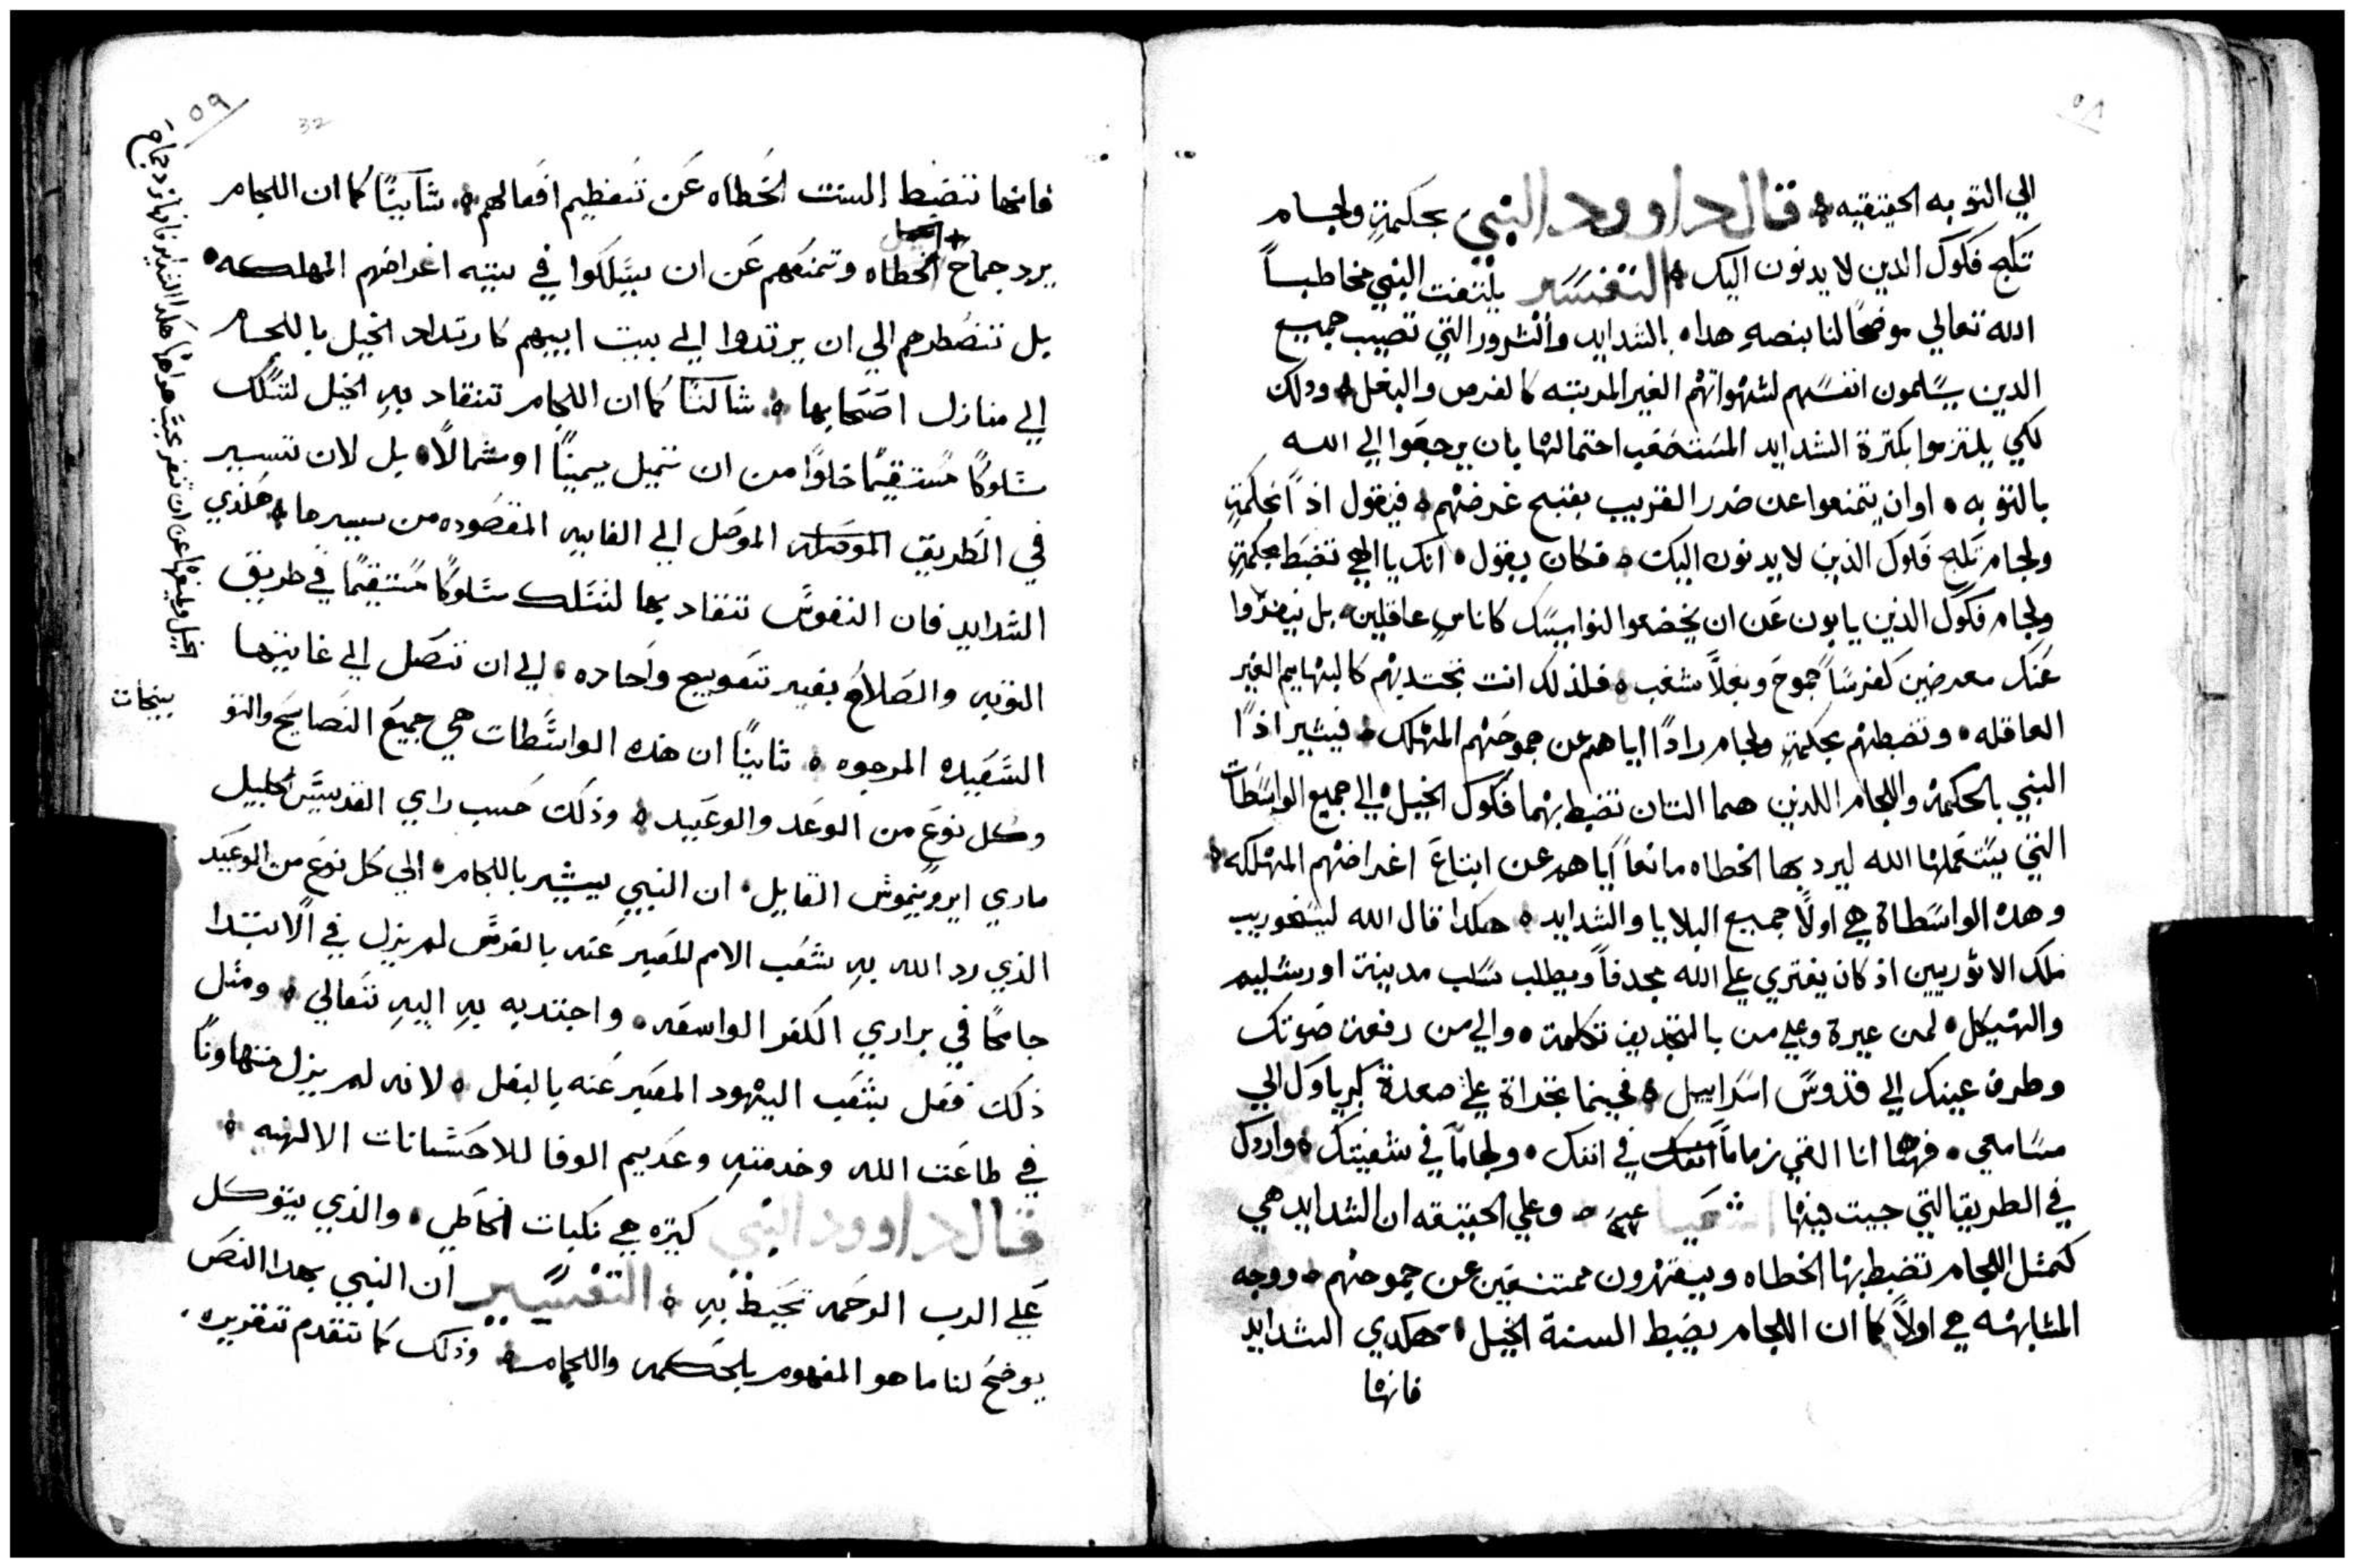 ٥٨
الي التوبه الحقيقيه ه قال داوود النبي بحكمةٍ ولجام
تكبح فكوك الدين لا يدنون اليك ه التفسير يلتفت النبي مخاطباً
الله تعالي موضحاً لنا بنصهِ هداه بالشدايد والشرور التي تصيب جميع
الدين يسلمون انفسهم لشهواتهم الغير المرتبه كالفرس والبغل ه ودلك
لكي يلتزموا بكترة الشدايد المستصعب احتمالها بان يرجعوا الي الله
بالتوبه ه او ان يتمنعوا عن ضرر القريب بقبح غرضهم ه فيقول اذاً بحكمةٍ
ولجام تكبح فكوك الذين لا يدنون اليك ه فكان يقول ه انك يا الهي تضبط بحكمةٍ
ولجام فكوك الذين يابون عن ان يخضعوا لنواميسك كاناسٍ عاقلين ه بل ينفروا
عنك معرضين كفرسًا جموح وبغلاً مشغب ه فلذلك انت تجتديهم كالبهايم الغير
العاقله ه وتضبطهم بحكمةٍ ولجام رادًا اياهم عن جموحهم المهلك ه فيشير اذًا
النبي بالحكمة واللجام اللذين هما التان تضبط بهما فكوك الخيل ه الي جميع الواسطات
التي يستعملها الله ليرد بها الخطاه مانعاً اياهم عن اتباع اغراضهم المهلكه ه
وهده الواسطاة هي اولاً جميع البلايا والشدايد ه هكدا قال الله لسنحوريب
ملك الاثوريين اذ كان يفتري علي الله مجدفاً ويطلب سلب مدينة اورشليم
والهيكل ه لمن عيرة وعلي من بالتجديف تكلمة ه والي من رفعة صوتك
وطرف عينك الي قدوس اسراييل ه فحينما تجراة علي صعدة كبرياوك الي
مسامعي ه فهنا انا القي زماماً انفك في انفك ه ولجاماً في شفيتك ه واردك
في الطريق التي جيت فيها اشعيا ه وعلي الحقيقه ان الشدايد هي
كمثل اللجام تضبط بها الخطاه ويقهرون ممتنعين عن جموحهم ه ووجه
المشابهه هي اولاً كما ان اللجام يضبط السنة الخيل ه هكدي الشدايد
فانها
٥٩
32
فانها تضبط السنت الخطاه عن تعظيم افعالهم ه ثانيًا كما ان اللجام
يرد جماح الخطاه وتمنعهم عن ان يسلكوا في تيه اغراضهم المهلكه ه
بل تضطرهم الي ان يرتدوا الي بيت ابيهم كارتداد الخيل باللجام
الي منازل اصحابها ه ثالثًا كما ان اللجام تنقاد بهِ الخيل لتسلك
سلوكًا مستقيمًا خلوًا من ان تميل يمينًا او شمالًا ه بل لان تسير
في الطريق الموصله الموصل الي الغايه المقصوده من سيرها ه هكذي
الشدايد فان النفوس تنقاد بها لتسلك سلوكًا مستقيمًا في طريق
التوبه والصلاح بغير تعويج واحاده ه الي ان تصل الي غايتها
السعيده المرجوه ه ثانيًا ان هذه الواسطات هي جميع النصايح والتو
بيخات
وكل نوع من الوعد والوعيد ه وذلك حسب راي القديس الجليل
ماري ايرونيموس القايل ه ان النبي يشير باللجام ه الي كل نوع من الوعيد
الذي رد الله بهِ شعب الامم المعبر عنه بالفرس لم يزل في الابتدا
جامحًا في براري الكفر الواسعه ه واجتدبه بهِ اليهِ تعالي ه ومثل
ذلك فعل بشعب اليهود المعبر عنه بالبغل ه لانه لم يزل متهاونًا
في طاعت الله وخدمتهِ وعديم الوفا للاحسانات الالهيه ه
قال داوود النبي كتيره هي نكبات الخاطي ه والذي يتوكل
علي الرب الرحمه تحيط بهِ ه التفسير ان النبي بهدا النص
يوضح لنا ما هو المفهوم بالحكمه واللجام ه وذلك كما تقدم تقريره ه